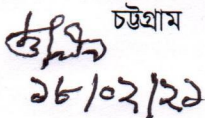 চট্টগ্রাম
১৮/০২/২১